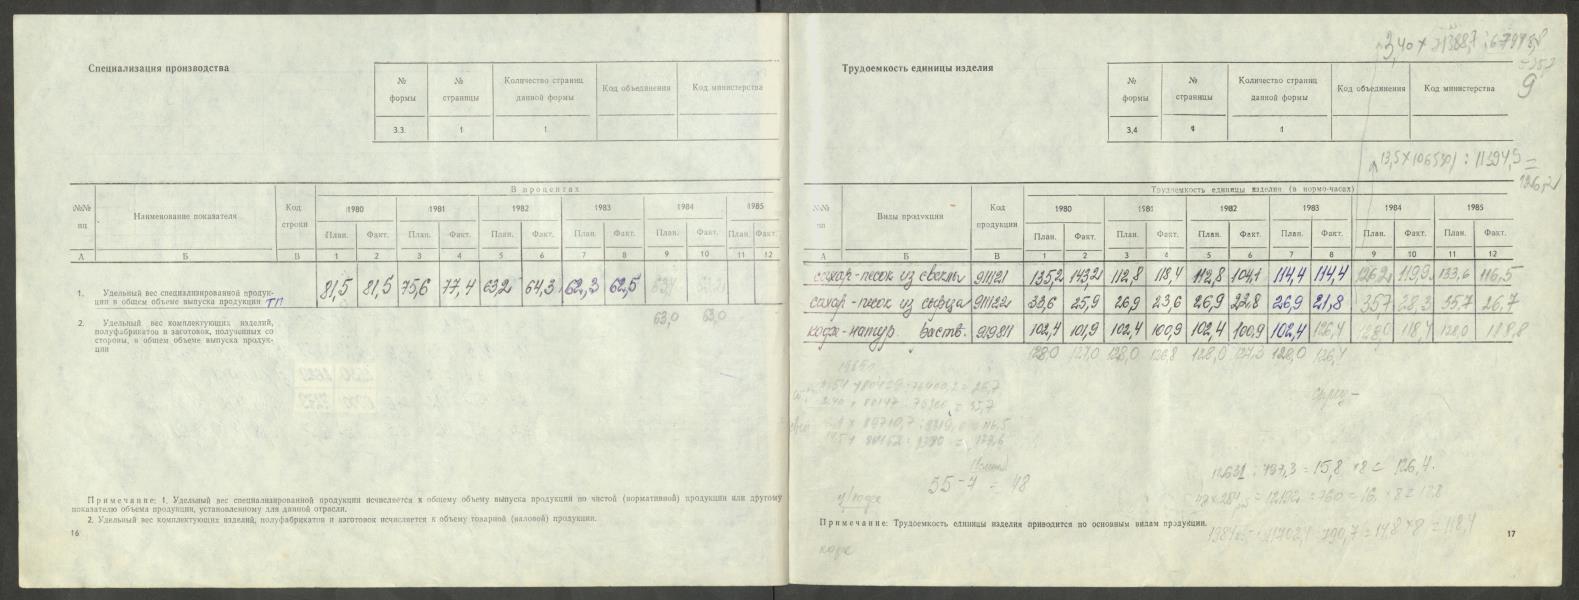 Специализация производства
№ формы № страницы Количество страниц данной формы Код объединения Код министерства
3.3. 1 1
№№ пп Наименование показателя Код строки В процентах
1980 1981 1982 1983 1984 1985
План. Факт. План. Факт. План. Факт. План. Факт. План. Факт. План. Факт.
А Б В 1 2 3 4 5 6 7 8 9 10 11 12
1. Удельный вес специализированной продук-
ции в общем объеме выпуска продукции ТП 81,5 81,5 75,6 77,4 63,2 64,3 62,3 62,5
63,0 63,0
2. Удельный вес комплектующих изделий,
полуфабрикатов и заготовок, полученных со
стороны, в общем объеме выпуска продук-
ции
Примечание: 1. Удельный вес специализированной продукции исчисляется к общему объему выпуска продукции по чистой (нормативной) продукции или другому
показателю объема продукции, установленному для данной отрасли.
2. Удельный вес комплектующих изделий, полуфабрикатов и заготовок исчисляется к объему товарной (валовой) продукции.
16
Трудоемкость единицы изделия
9
№ формы № страницы Количество страниц данной формы Код объединения Код министерства
3,4 1 1
126,2
№№ пп Виды продукции Код продукции Трудоемкость единицы изделия (в нормо-часах)
1980 1981 1982 1983 1984 1985
План. Факт. План. Факт. План. Факт. План. Факт. План. Факт. План. Факт.
А Б В 1 2 3 4 5 6 7 8 9 10 11 12
сахар-песок из свеклы 911121 135,2 143,2 112,8 118,4 112,8 104,1 114,4 114,4 126,2 119,9 133,6 116,5
сахар-песок из сырца 911122 33,6 25,9 26,9 23,6 26,9 22,8 26,9 21,8 35,7 28,3 35,7 26,7
кофе-натур. раств. 919811 102,4 101,9 102,4 100,9 102,4 100,9 102,4 126,4 128,0 118,4 128,0 118,8
128,0 127,0 128,0 126,8 128,0 127,3 128,0 126,4
55-7 = 48
12631 : 797,3 = 15,8 × 8 = 126,4.
Примечание: Трудоемкость единицы изделия приводится по основным видам продукции.
790,7 = 14,8 × 8 = 118,4
кофе
17